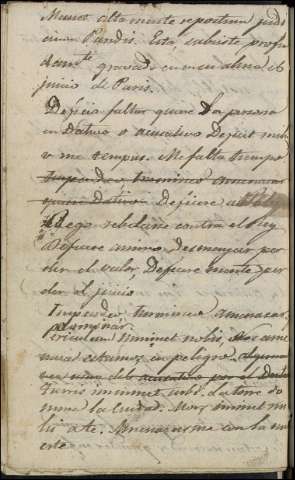 Manet alta mente repostum judi
cium Paridis. Esta, subsiste profun
damte gravado en su alma el
juicio de Paris.
Deficio faltar quiere la persona
en Dativo o acusativo Deficit mihi
v me tempus. Me falta tiempo
Impendeo termineo amenazar
quiere Dativo Deficere a
Rege rebelarse contra el Rey
Deficere animo desmayar per
der el valor, Deficere mente per
der el juicio
Impendeo termineo amenazar,
Periculum iminet nobis, Nos ame
naza estamos en peligro
Turris iminet urbi. La torre do
mina la ciudad. Mors iminet mi
hi a te. Me amenazas con la mu
erte